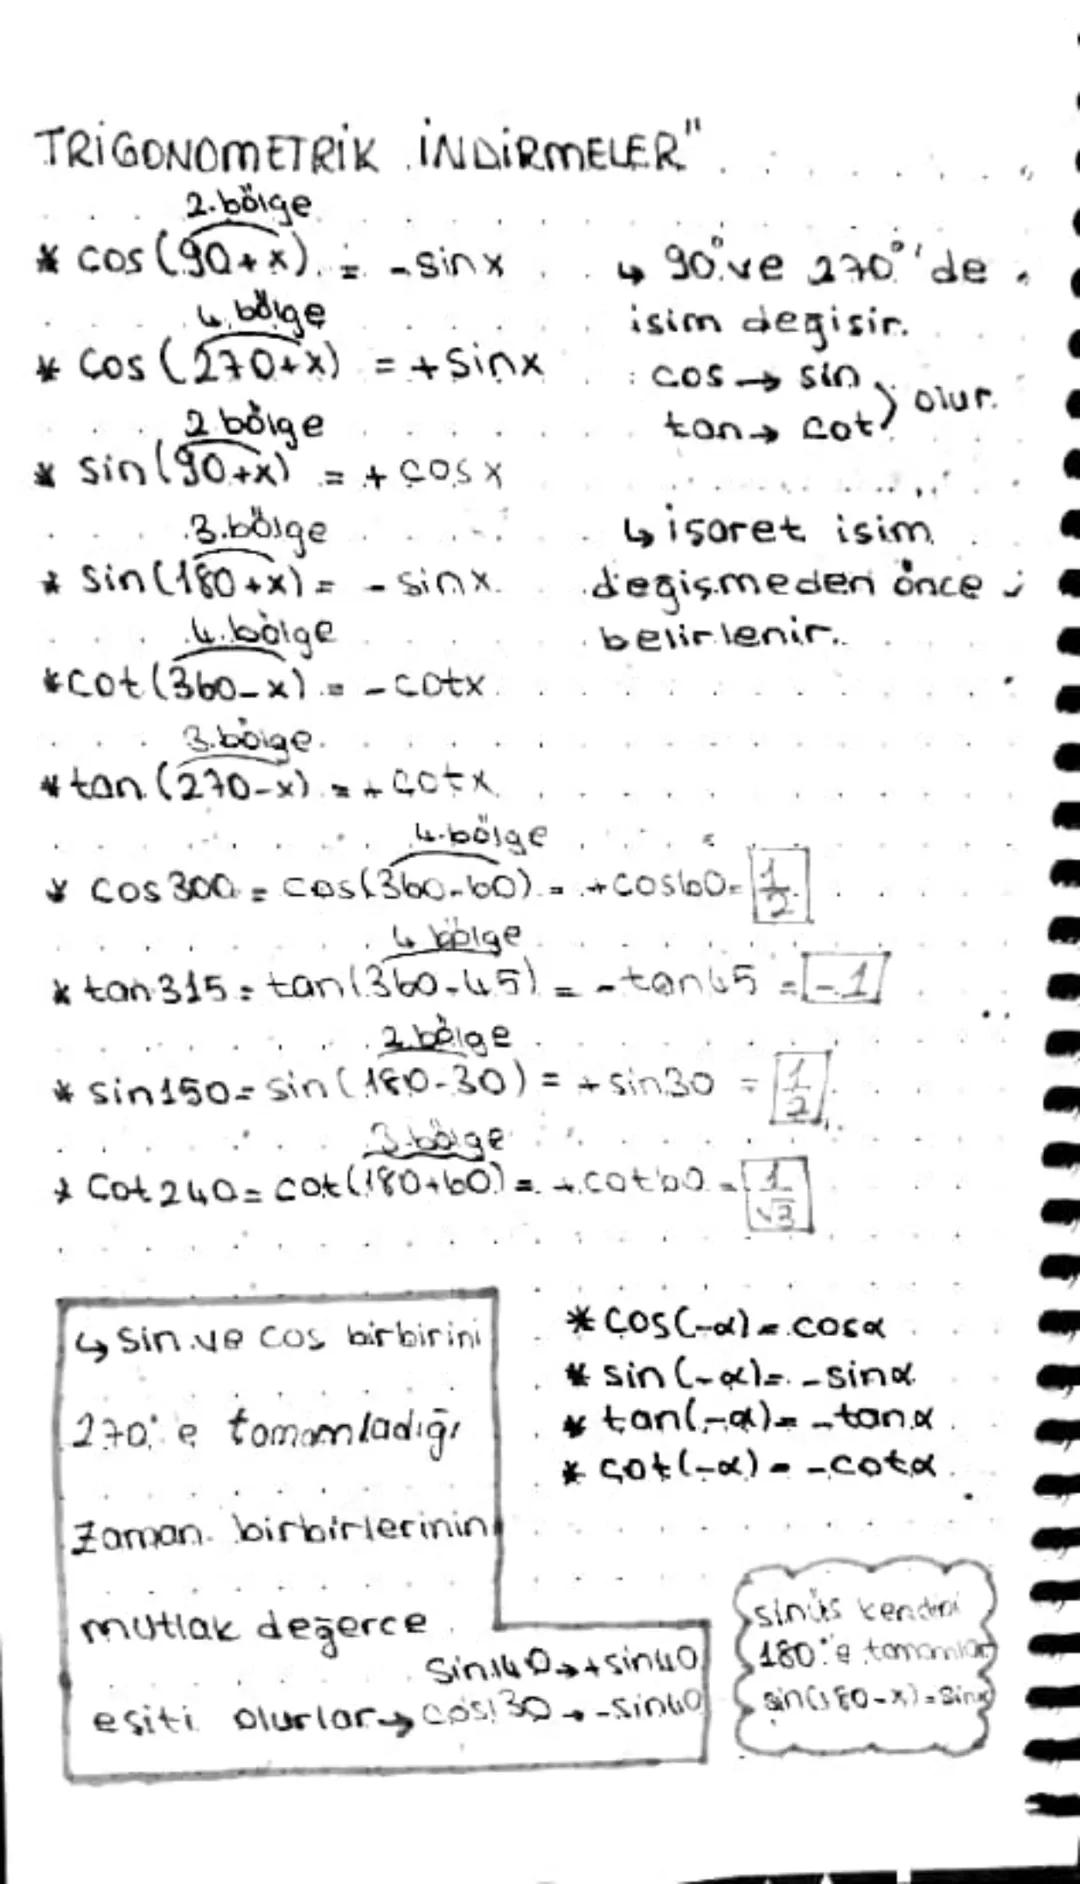 TRİGONOMETRİK İNDİRMELER"
2.bölge
* cos(90+x) = -sinx
4.bölge
* cos(270+x) = +sinx
2 bölge
* sin(90+x) = + cosx
3.bölge
* sin(180+x) = - sinx
4.bölge
* cot(360-x) = -cotx
3.bölge
* tan(270-x) = + cotx
↳ 90° ve 270°'de
isim degisir.
cos → sin
tan → cot } olur.
↳ işaret isim
değişmeden önce
belirlenir.
4.bölge
* cos300 = cos(360-60) = +cos60 = 1/2
4 bölge
* tan315 = tan(360-45) = -tan45 = -1
2.bölge
* sin150 = sin(180-30) = + sin30 = 1/2
3.bölge
* cot240 = cot(180+60) = + cot60 = 1/√3
↳ sin ve cos birbirini
270°e tamamladığı
zaman birbirlerinin
mutlak değerce
eşiti olurlar →
sin140 → +sin40
cos130 → -sin40
* cos(-α) = cosα
* sin(-α) = -sinα
* tan(-α) = -tanα
* cot(-α) = -cotα
sinüs kendini
180°e tamamlar
sin(180-x) = sinx